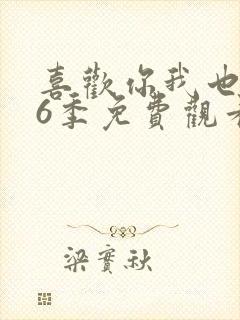 喜歡你我也
6季免費觀
梁實秋